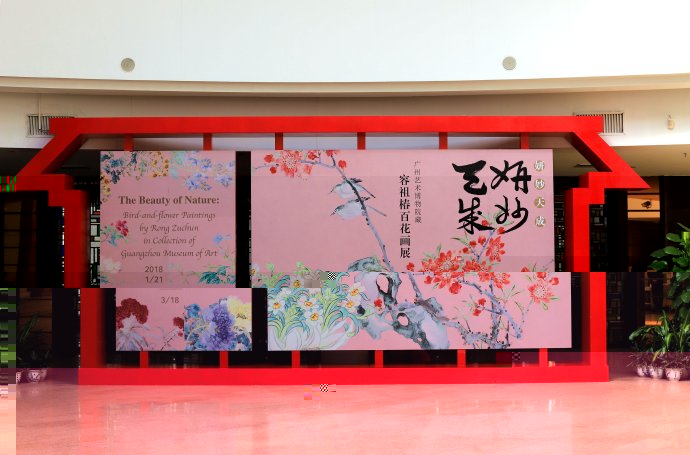 The Beauty of Nature:
Bird-and-flower Paintings
by Rong Zuchun
in Collection of
Guangzhou Museum of Art
2018
1/21
3/18
妍妙天成
妍妙
天成
广州艺术博物院藏
容祖椿百花画展